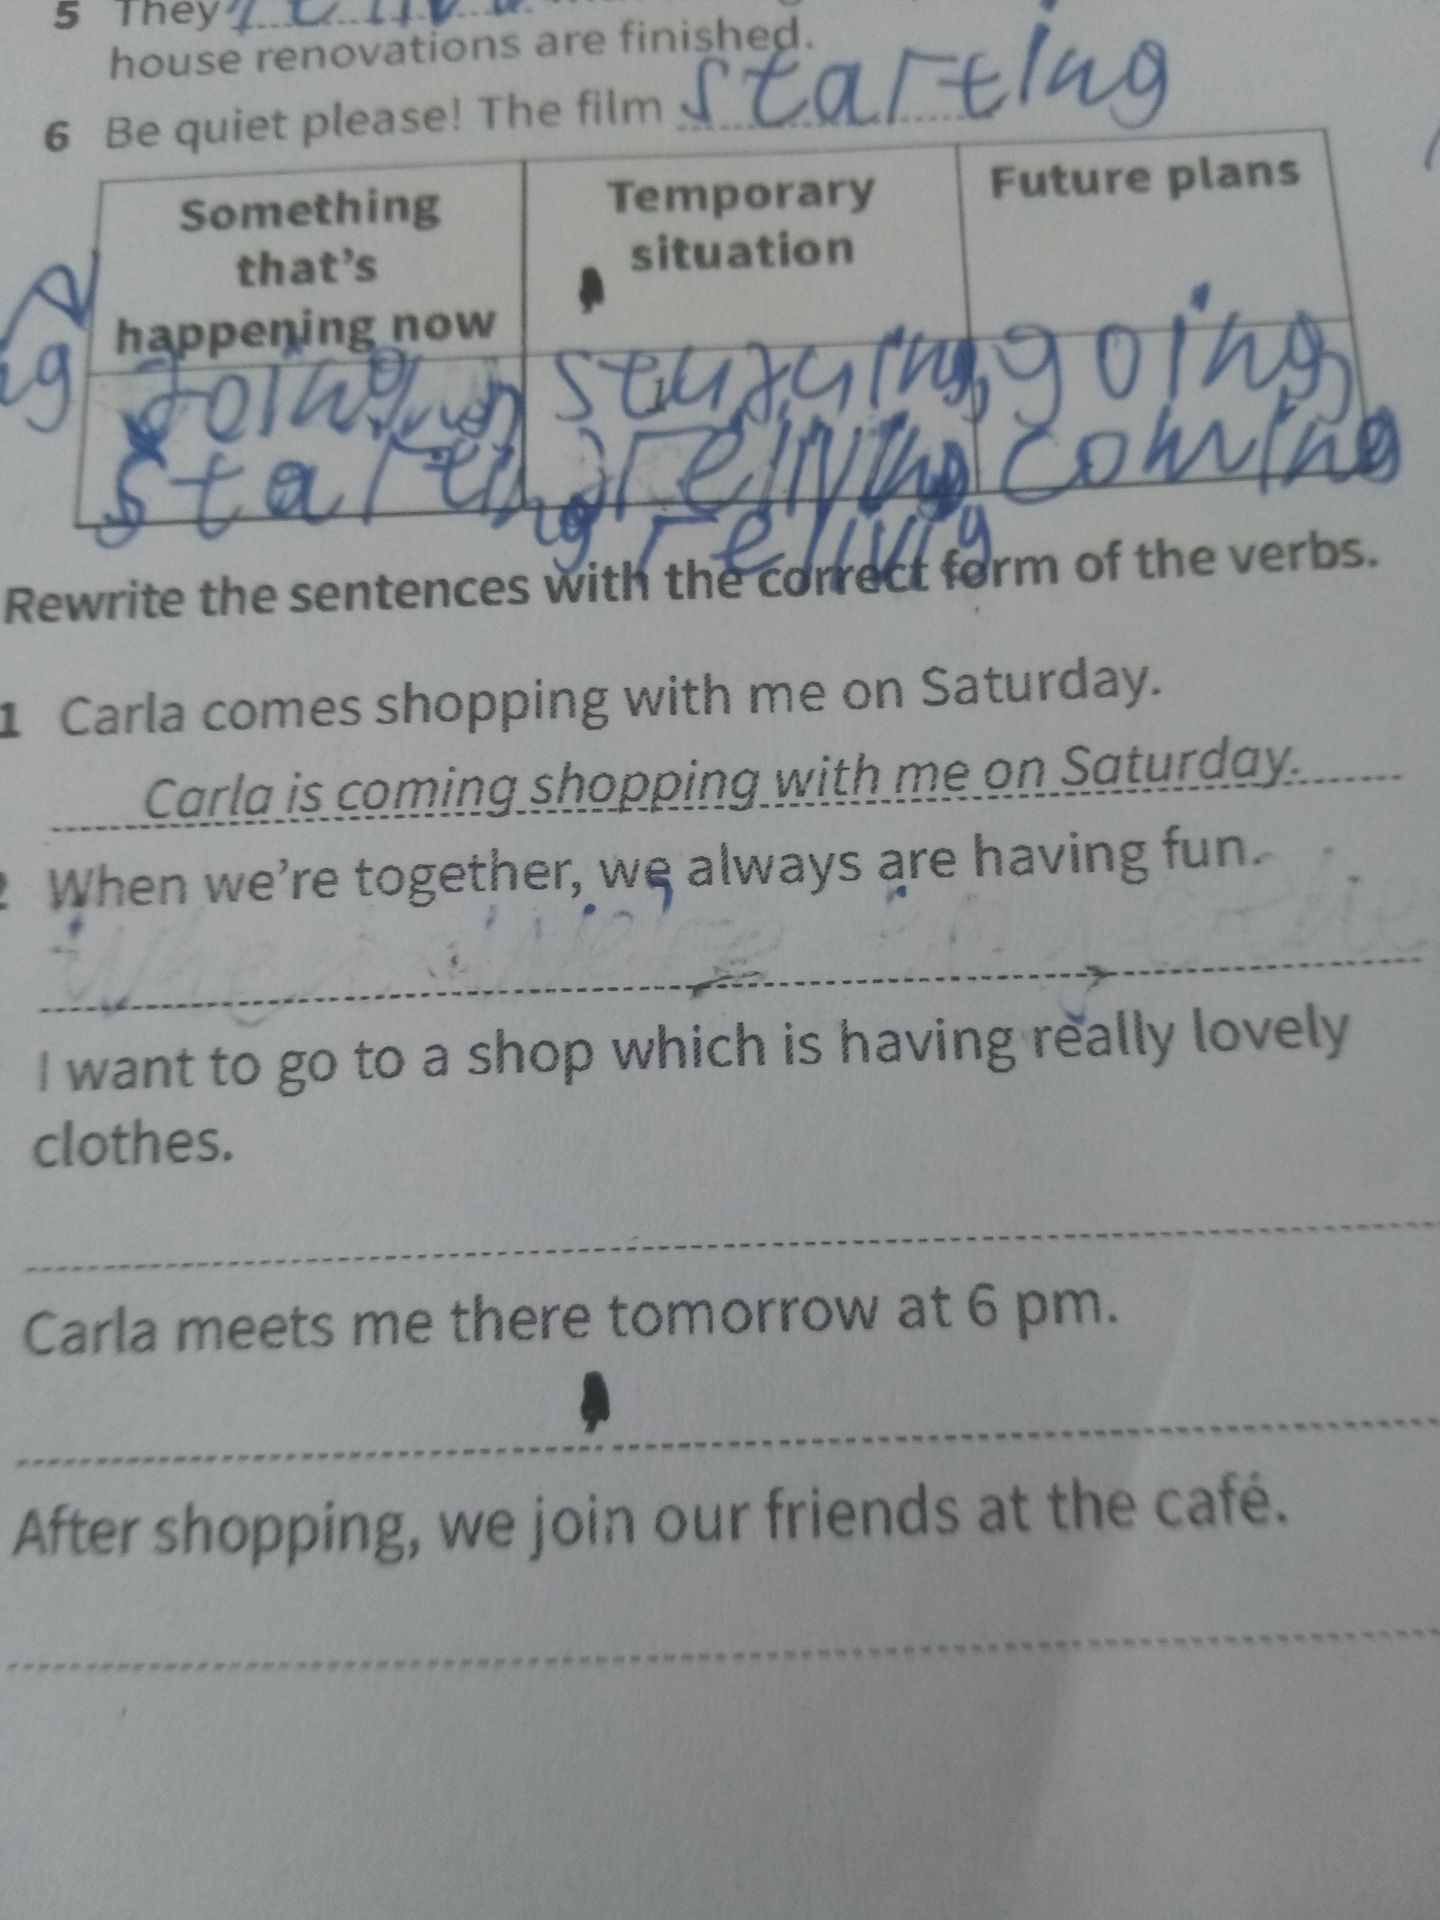 5 They
house renovations are finished.
6 Be quiet please! The film starting
Something that's happening now
Temporary situation
Future plans
doing
studying, going
starting coming
Rewrite the sentences with the correct form of the verbs.
1 Carla comes shopping with me on Saturday.
Carla is coming shopping with me on Saturday.
2 When we're together, we always are having fun.
I want to go to a shop which is having really lovely
clothes.
Carla meets me there tomorrow at 6 pm.
After shopping, we join our friends at the café.